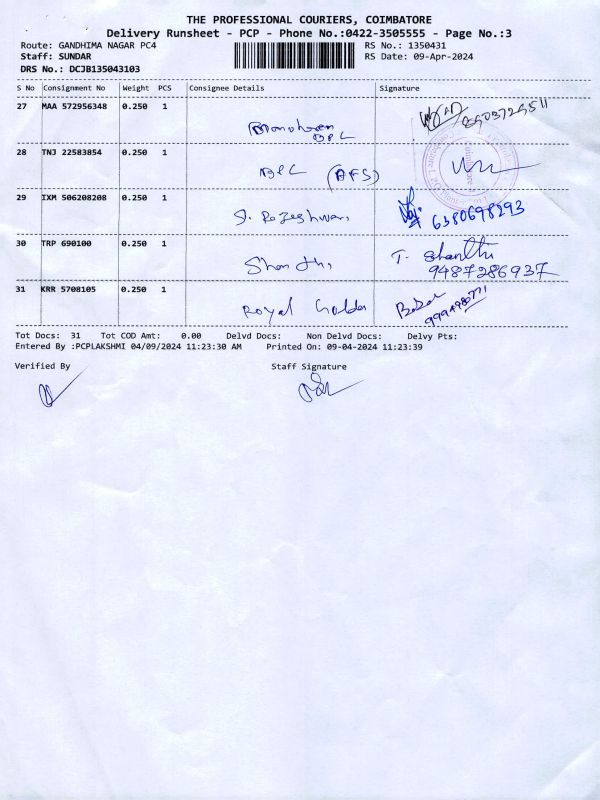 THE PROFESSIONAL COURIERS, COIMBATORE
Delivery Runsheet - PCP - Phone No.:0422-3505555 - Page No.:3
Route: GANDHIMA NAGAR PC4 RS No.: 1350431
Staff: SUNDAR RS Date: 09-Apr-2024
DRS No.: DCJB135043103
S No Consignment No Weight PCS Consignee Details Signature
27 MAA 572956348 0.250 1
BPL
28 TNJ 22583854 0.250 1
BPL (AFS)
29 IXM 506208208 0.250 1
S. Rajeshwari 6380698293
30 TRP 690100 0.250 1
Shanthi T. Shanthi
9487286937
31 KRR 5708105 0.250 1
Royal
Tot Docs: 31 Tot COD Amt: 0.00 Delvd Docs: Non Delvd Docs: Delvy Pts:
Entered By :PCPLAKSHMI 04/09/2024 11:23:30 AM Printed On: 09-04-2024 11:23:39
Verified By Staff Signature